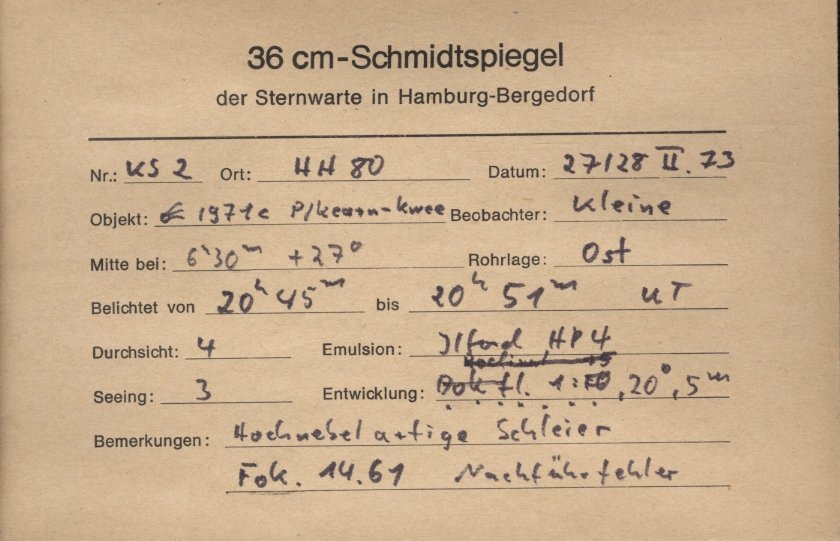 36 cm-Schmidtspiegel
der Sternwarte in Hamburg-Bergedorf
Nr.: KS 2 Ort: HH 80 Datum: 27/28 II. 73
Objekt: 1971c P/Kearn-Kwee Beobachter: Kleine
Mitte bei: 6h30m +27° Rohrlage: Ost
Belichtet von 20h 45m bis 20h 51m UT
Durchsicht: 4 Emulsion: Ilford HP4
Seeing: 3 Entwicklung: Dok fl. 1:10, 20°, 5m
Bemerkungen: Hochnebelartige Schleier
Fok. 14.61 Nachführfehler